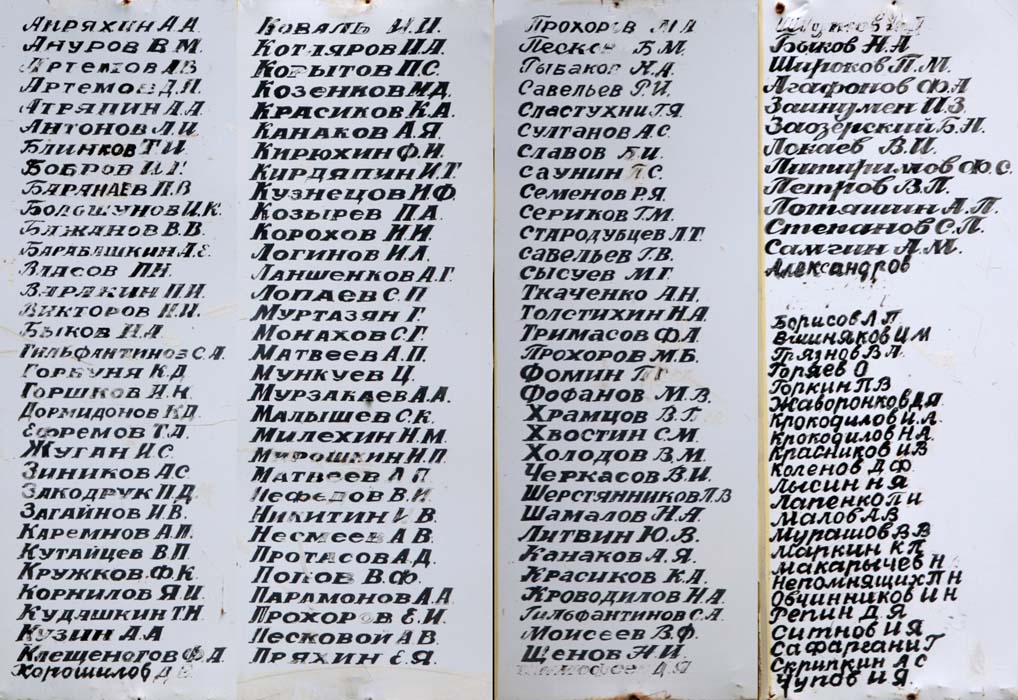 Апряхин А.А.
Ануров В.М.
Артемов А.В
Артемов Д.П.
Атряпин А.А.
Антонов Л.И
Блинков Т.И.
Бобров И.Г
Баранаев П.В
Болошунов И.К.
Бажанов В.В.
Барабашкин А.Е.
Власов П.Н.
Варакин П.И.
Викторов Н.И.
Быков И.А
Гильфантинов С.А.
Горбуня К.Д
Горшков И.Н.
Дормидонов К.Д
Ефремов Т.А.
Жуган И.С.
Зиников А.С.
Закодрук П.Д.
Загайнов И.В.
Каремнов А.П.
Кутайцев В.П.
Кружков Ф.К.
Корнилов Я.И.
Кудашкин Т.Н.
Кузин А.А
Клещеногов Ф.А.
Хорошилов
Коваль И.И.
Котляров И.А.
Копытов П.С.
Козенков М.Д.
Красиков К.А.
Канаков А.Я.
Кирюхин Ф.И.
Кирдяпин И.Г
Кузнецов И.Ф.
Козырев П.А.
Корохов И.И.
Логинов И.Л.
Ланшенков А.Г.
Лопаев С.П
Муртазян Г.
Монахов С.Г.
Матвеев А.П.
Мункуев Ц.
Мурзакаев А.А.
Малышев С.К.
Милехин Н.М.
Мирошкин И.П.
Матвеев А.П
Нефедов В.И.
Никитин И.В.
Несмеев А.В.
Протасов А.Д.
Попов В.Ф.
Парамонов А.А
Прохоров Е.И.
Песковой А.В.
Пряхин Е.Я.
Прохоров М.А
Песков Б.М.
Рыбаков Н.А.
Савельев Р.И.
Сластухин Г.Я.
Султанов А.С.
Славов Б.И.
Саунин П.С.
Семенов Р.Я.
Сериков Г.М.
Стародубцев Л.Т.
Савельев Г.В.
Сысуев М.Г.
Ткаченко А.Н.
Толстихин Н.А.
Тримасов Ф.А.
Прохоров М.Б.
Фомин П.
Фофанов М.В.
Храмцов В.Г
Хвостин С.М.
Холодов В.М.
Черкасов В.И.
Шерстянников П.В
Шамалов Н.Я.
Литвин Ю.В.
Канаков А.Я.
Красиков К.А.
Кроводилов Н.А.
Гильфантинов С.А.
Моисеев В.Ф.
Щенов Н.И.
Быков Н.А
Широков П.М.
Агафонов Ф.А
Зайнумен И.З.
Заозерский Б.Н.
Локаев В.И.
Питиримов Ф.С.
Петров В.П.
Поташин А.П.
Степанов С.П.
Самгин А.М.
Александров
Борисов Л.П.
Вшиняков И М
Грязнов В А.
Горяев О
Горкин П В
Жаворонков Д.Я.
Крокодилов И.А.
Крокодилов Н.А.
Красников И.В
Коленов Д.Ф.
Лысин Н Я
Лапенко П И
Малов А.В
Мурашов В В
Маркин К П
Макарычев Н
Непомнящих П Н
Овчинников И Н
Репин Д Я
Ситнов И Я
Сафаргани Г
Скрипкин А С
Чупов И Я.